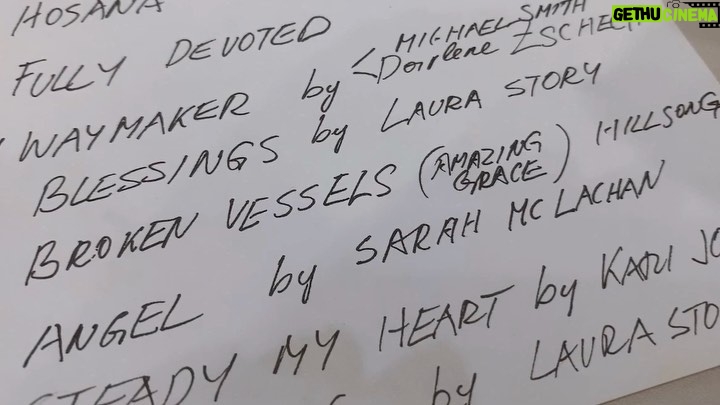 GETHUCINEMA
HOSANA
FULLY DEVOTED
WAYMAKER by < MICHAEL SMITH
Darlene ZSCHECH
BLESSINGS by LAURA STORY
BROKEN VESSELS (AMAZING GRACE) HILLSONG
ANGEL by SARAH MC LACHAN
STEADY MY HEART by KARI JO
by LAURA STO